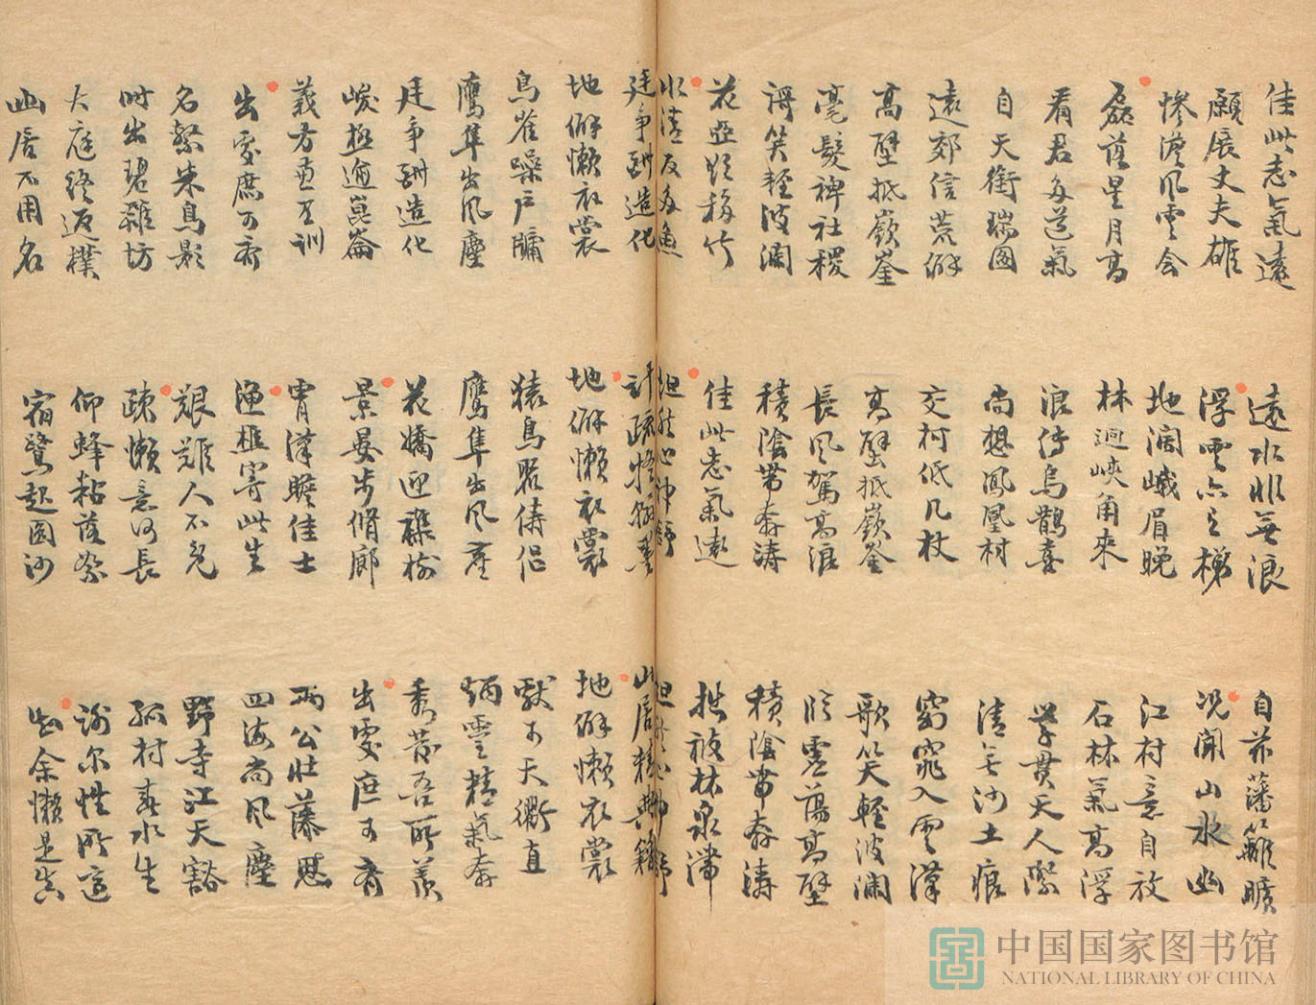 佳此志氣遠 遠水非無浪 自茲藩籬曠
願展丈夫雄 浮雲亦梯 況聞山水幽
慘澹風雲會 地闊峨眉晚 江村意自放
磊落星月高 林迥峽角來 石林氣高浮
看君多道氣 浪傳烏鵲喜 學貫天人際
自天銜瑞圖 尚想鳳凰村 清無沙土痕
遠郊信荒僻 交柯低几杖 窈窕入雲漢
高壁抵嶔崟 高壁抵嶔崟 歌笑輕波瀾
毫髮裨社稷 長風駕高浪 臨虛蕩高壁
謌笑輕波瀾 積陰帶奔濤 積陰帶奔濤
花亞欲移竹 佳此志氣遠 拙被林泉滯
水清反多魚 心神
廷爭酬造化 計疏疑翰墨 山居精典籍
地僻懶衣裳 地僻懶衣裳 地僻懶衣裳
鳥雀噪戶牖 猿鳥聚儔侶 獻可天衢直
鷹隼出風塵 鷹隼出風塵 炳靈精氣奔
廷爭酬造化 花嬌迎雜樹 秀發吾所羨
峻極逾崑崙 景晏步脩廊 出處庶可齊
義方兼有訓 霄漢瞻佳士 兩公壯藻思
出處庶可齊 漁樵寄此生 四海尚風塵
名繫朱鳥影 艱難人不免 野寺江天豁
時出碧雞坊 疎懶意何長 孤村春水生
大庭終返樸 仰蜂粘落絮 謝爾性所適
幽居不用名 宿鷺起圓沙 余懶是真
中国国家图书馆
NATIONAL LIBRARY OF CHINA